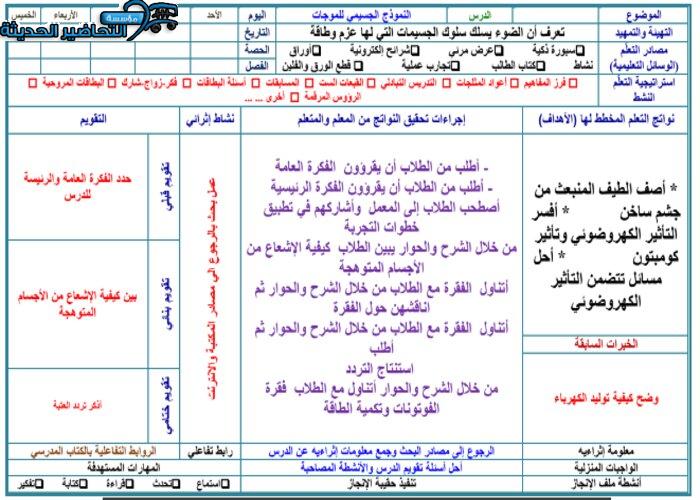 الموضوع الدرس النموذج الجسيمي للموجات اليوم الأحد الأربعاء الخميس
مؤسسة التحاضير الحديثة
التهيئة والتمهيد تعرف أن الضوء يسلك سلوك الجسيمات التي لها عزم وطاقة التاريخ
مصادر التعلم □ سبورة ذكية □ عرض مرئي □ شرائح إلكترونية □ أوراق الحصة
(الوسائل التعليمية) نشاط □ كتاب الطالب □ تجارب عملية □ قطع الورق والفلين الفصل
استراتيجية التعلم □ فرز المفاهيم □ أعواد المثلجات □ التدريس التبادلي □ القبعات الست □ المسابقات □ أسئلة البطاقات □ فكر-زواج-شارك □ البطاقات المروحية
النشط □ الرؤوس المرقمة □ أخرى ... ...
نواتج التعلم المخطط لها (الأهداف) إجراءات تحقيق النواتج من المعلم والمتعلم نشاط إثرائي التقويم
* أصف الطيف المنبعث من
جشم ساخن * أفسر
التأثير الكهروضوئي وتأثير
كومبتون * أحل
مسائل تتضمن التأثير
الكهروضوئي
الخبرات السابقة
وضح كيفية توليد الكهرباء
- أطلب من الطلاب أن يقرؤون الفكرة العامة
- أطلب من الطلاب أن يقرؤون الفكرة الرئيسية
أصطحب الطلاب إلى المعمل وأشاركهم في تطبيق
خطوات التجربة
من خلال الشرح والحوار يبين الطلاب كيفية الإشعاع من
الأجسام المتوهجة
أتناول الفقرة مع الطلاب من خلال الشرح والحوار ثم
اناقشهن حول الفقرة
أتناول الفقرة مع الطلاب من خلال الشرح والحوار ثم
أطلب
استنتاج التردد
من خلال الشرح والحوار أتناول مع الطلاب فقرة
الفوتونات وتكمية الطاقة
عمل بحث بالرجوع الي مصادر المكتبة والانترنت
تقويم قبلي
حدد الفكرة العامة والرئيسة
للدرس
تقويم بنائي
بين كيفية الإشعاع من الأجسام
المتوهجة
تقويم ختامي
أذكر تردد العتبة
معلومة إثراعيه الرجوع إلى مصادر البحث وجمع معلومات إثراعيه عن الدرس رابط تفاعلي الروابط التفاعلية بالكتاب المدرسي
الواجبات المنزلية أحل أسئلة تقويم الدرس والأنشطة المصاحبة المهارات المستهدفة
أنشطة ملف الإنجاز تنفيذ حقيبة الإنجاز □ استماع □ تحدث □ قراءة □ كتابة □ تفكير